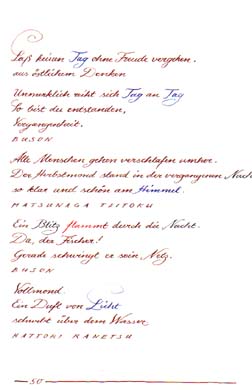 Laß keinen Tag ohne Freude vergehen.
aus östlichem Denken
Unmerklich reiht sich Tag an Tag
So bist du entstanden,
Vergangenheit.
BUSON
Alle Menschen gehen verschlafen umher.
Der Herbstmond stand in der vergangenen Nacht
so klar und schön am Himmel.
MATSUNAGA TEITOKU
Ein Blitz flammt durch die Nacht.
Da, der Fischer!
Gerade schwingt er sein Netz.
BUSON
Vollmond.
Ein Duft von Licht
schwebt über dem Wasser
HATTORI RANSETSU
50